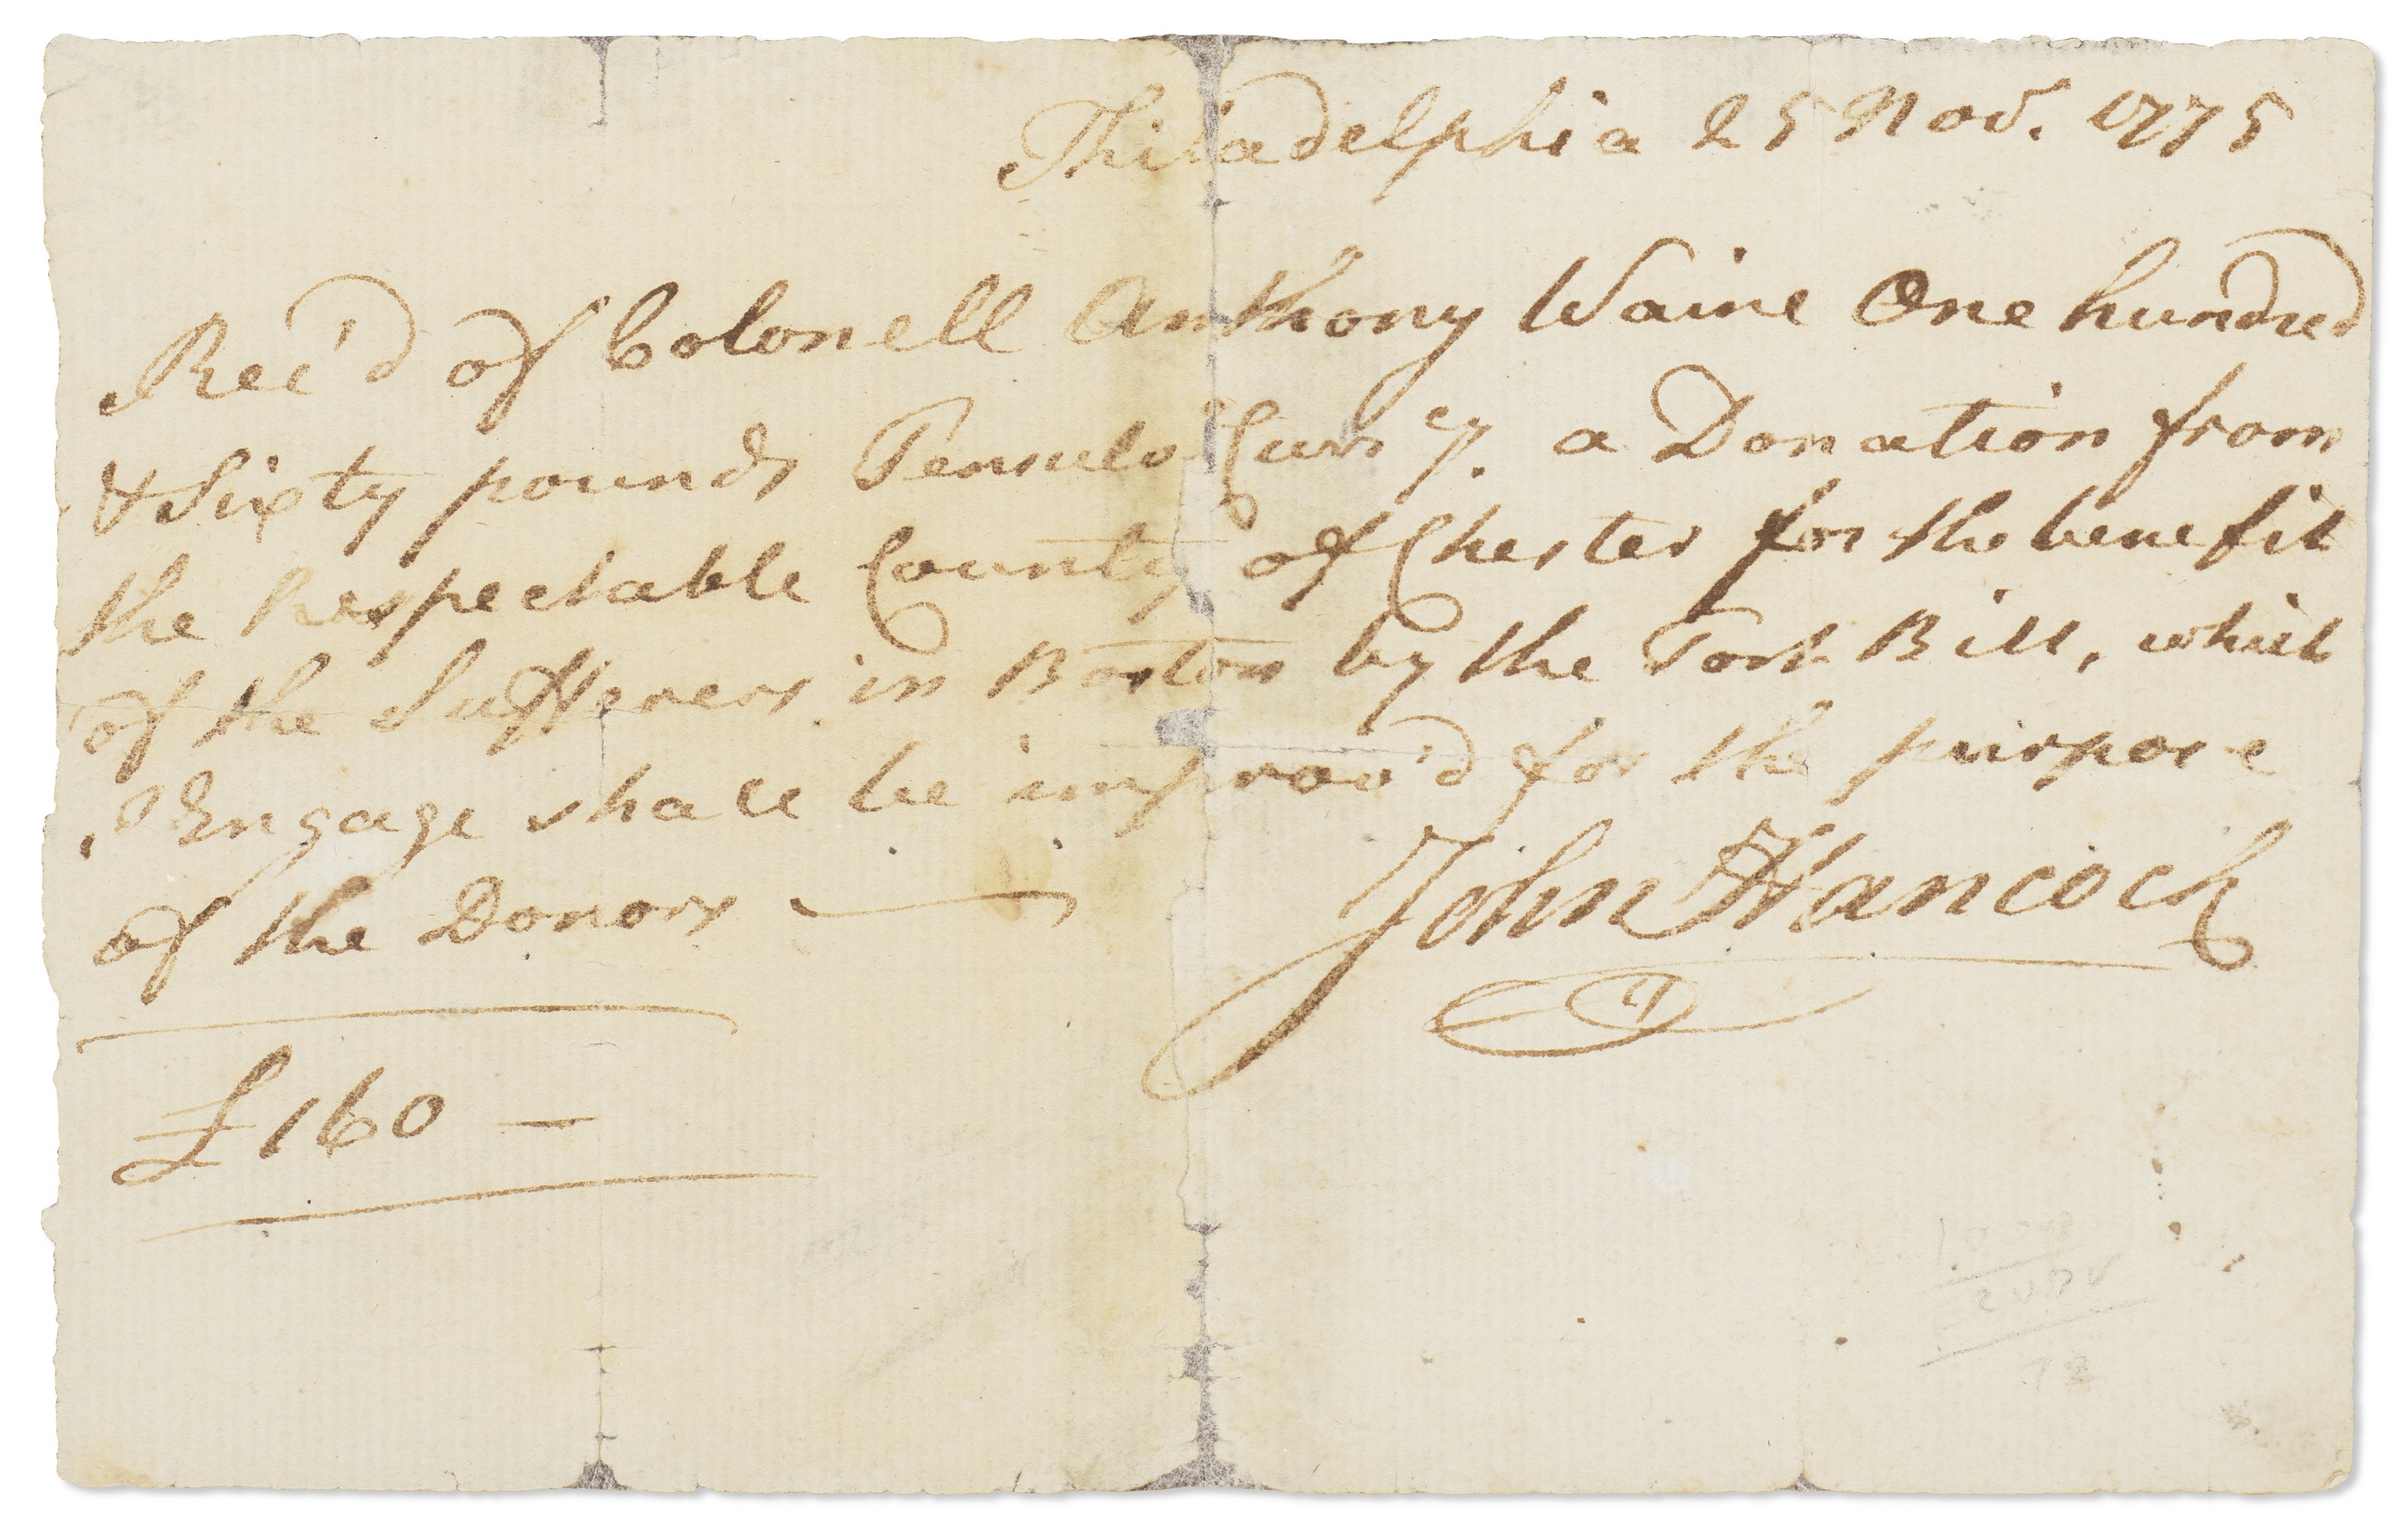 Philadelphia 25 Nov. 1775
Rec'd of Colonell Anthony Waine One hundred
& Sixty pounds Pensula Curr'cy. a Donation from
the Respectable County of Chester for the benefit
of the Sufferers in Boston by the Port Bill, which
I Engage shall be improv'd for the purpose
of the Donors
John Hancock
£160 —